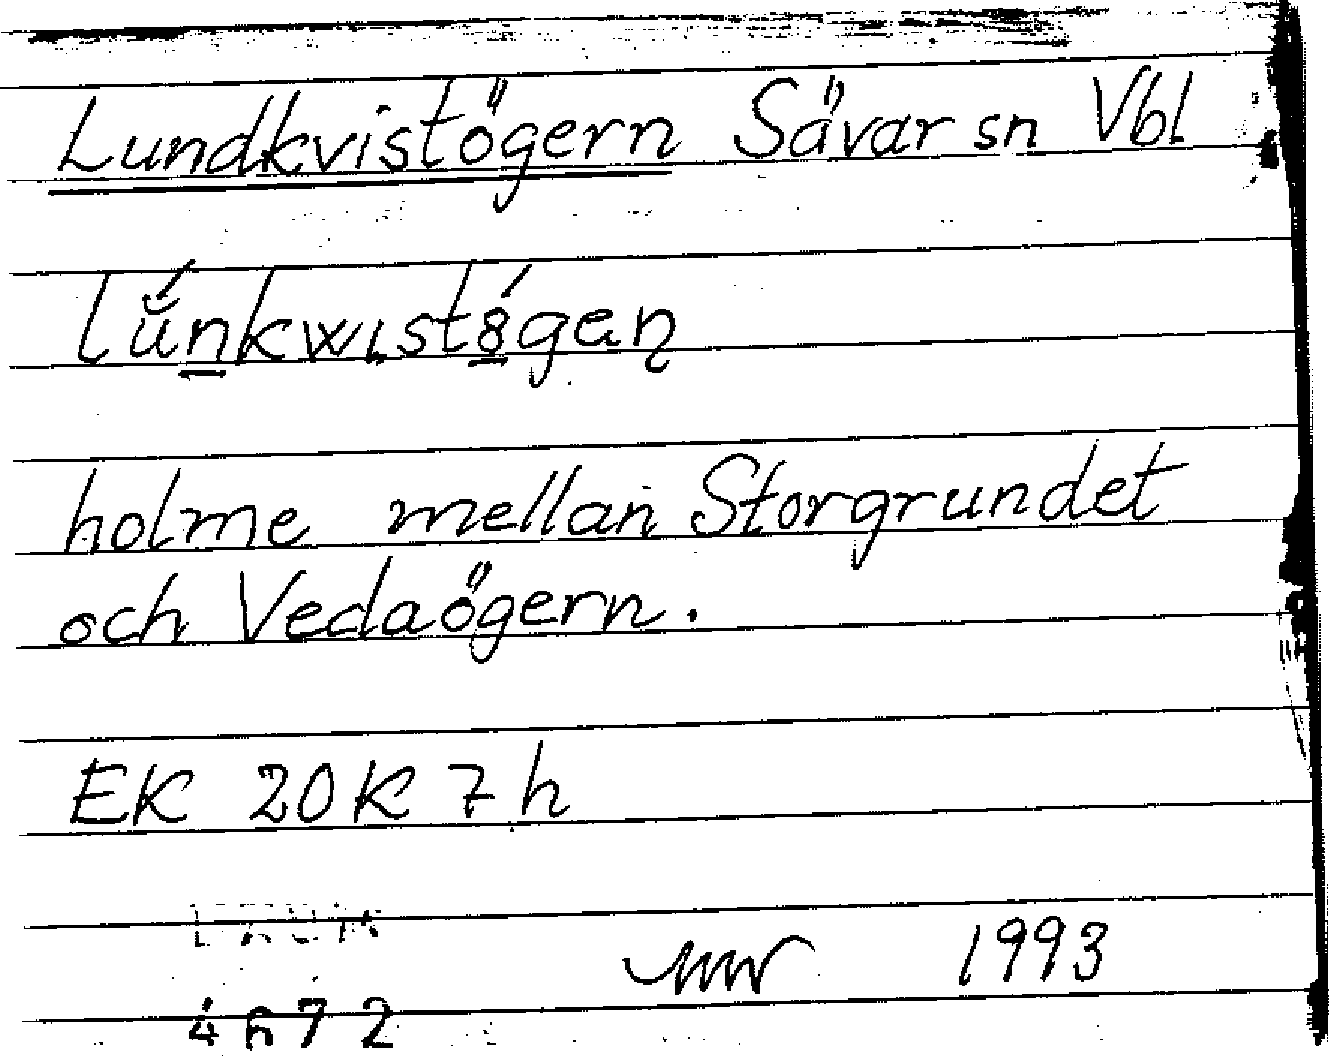 Lundkvistögern Sävar sn Vbl
lŭ́n̲kwιstȣ̲́gəɳ
holme mellan Storgrundet
och Vedaögern.
EK 20K 7h
1993
4672